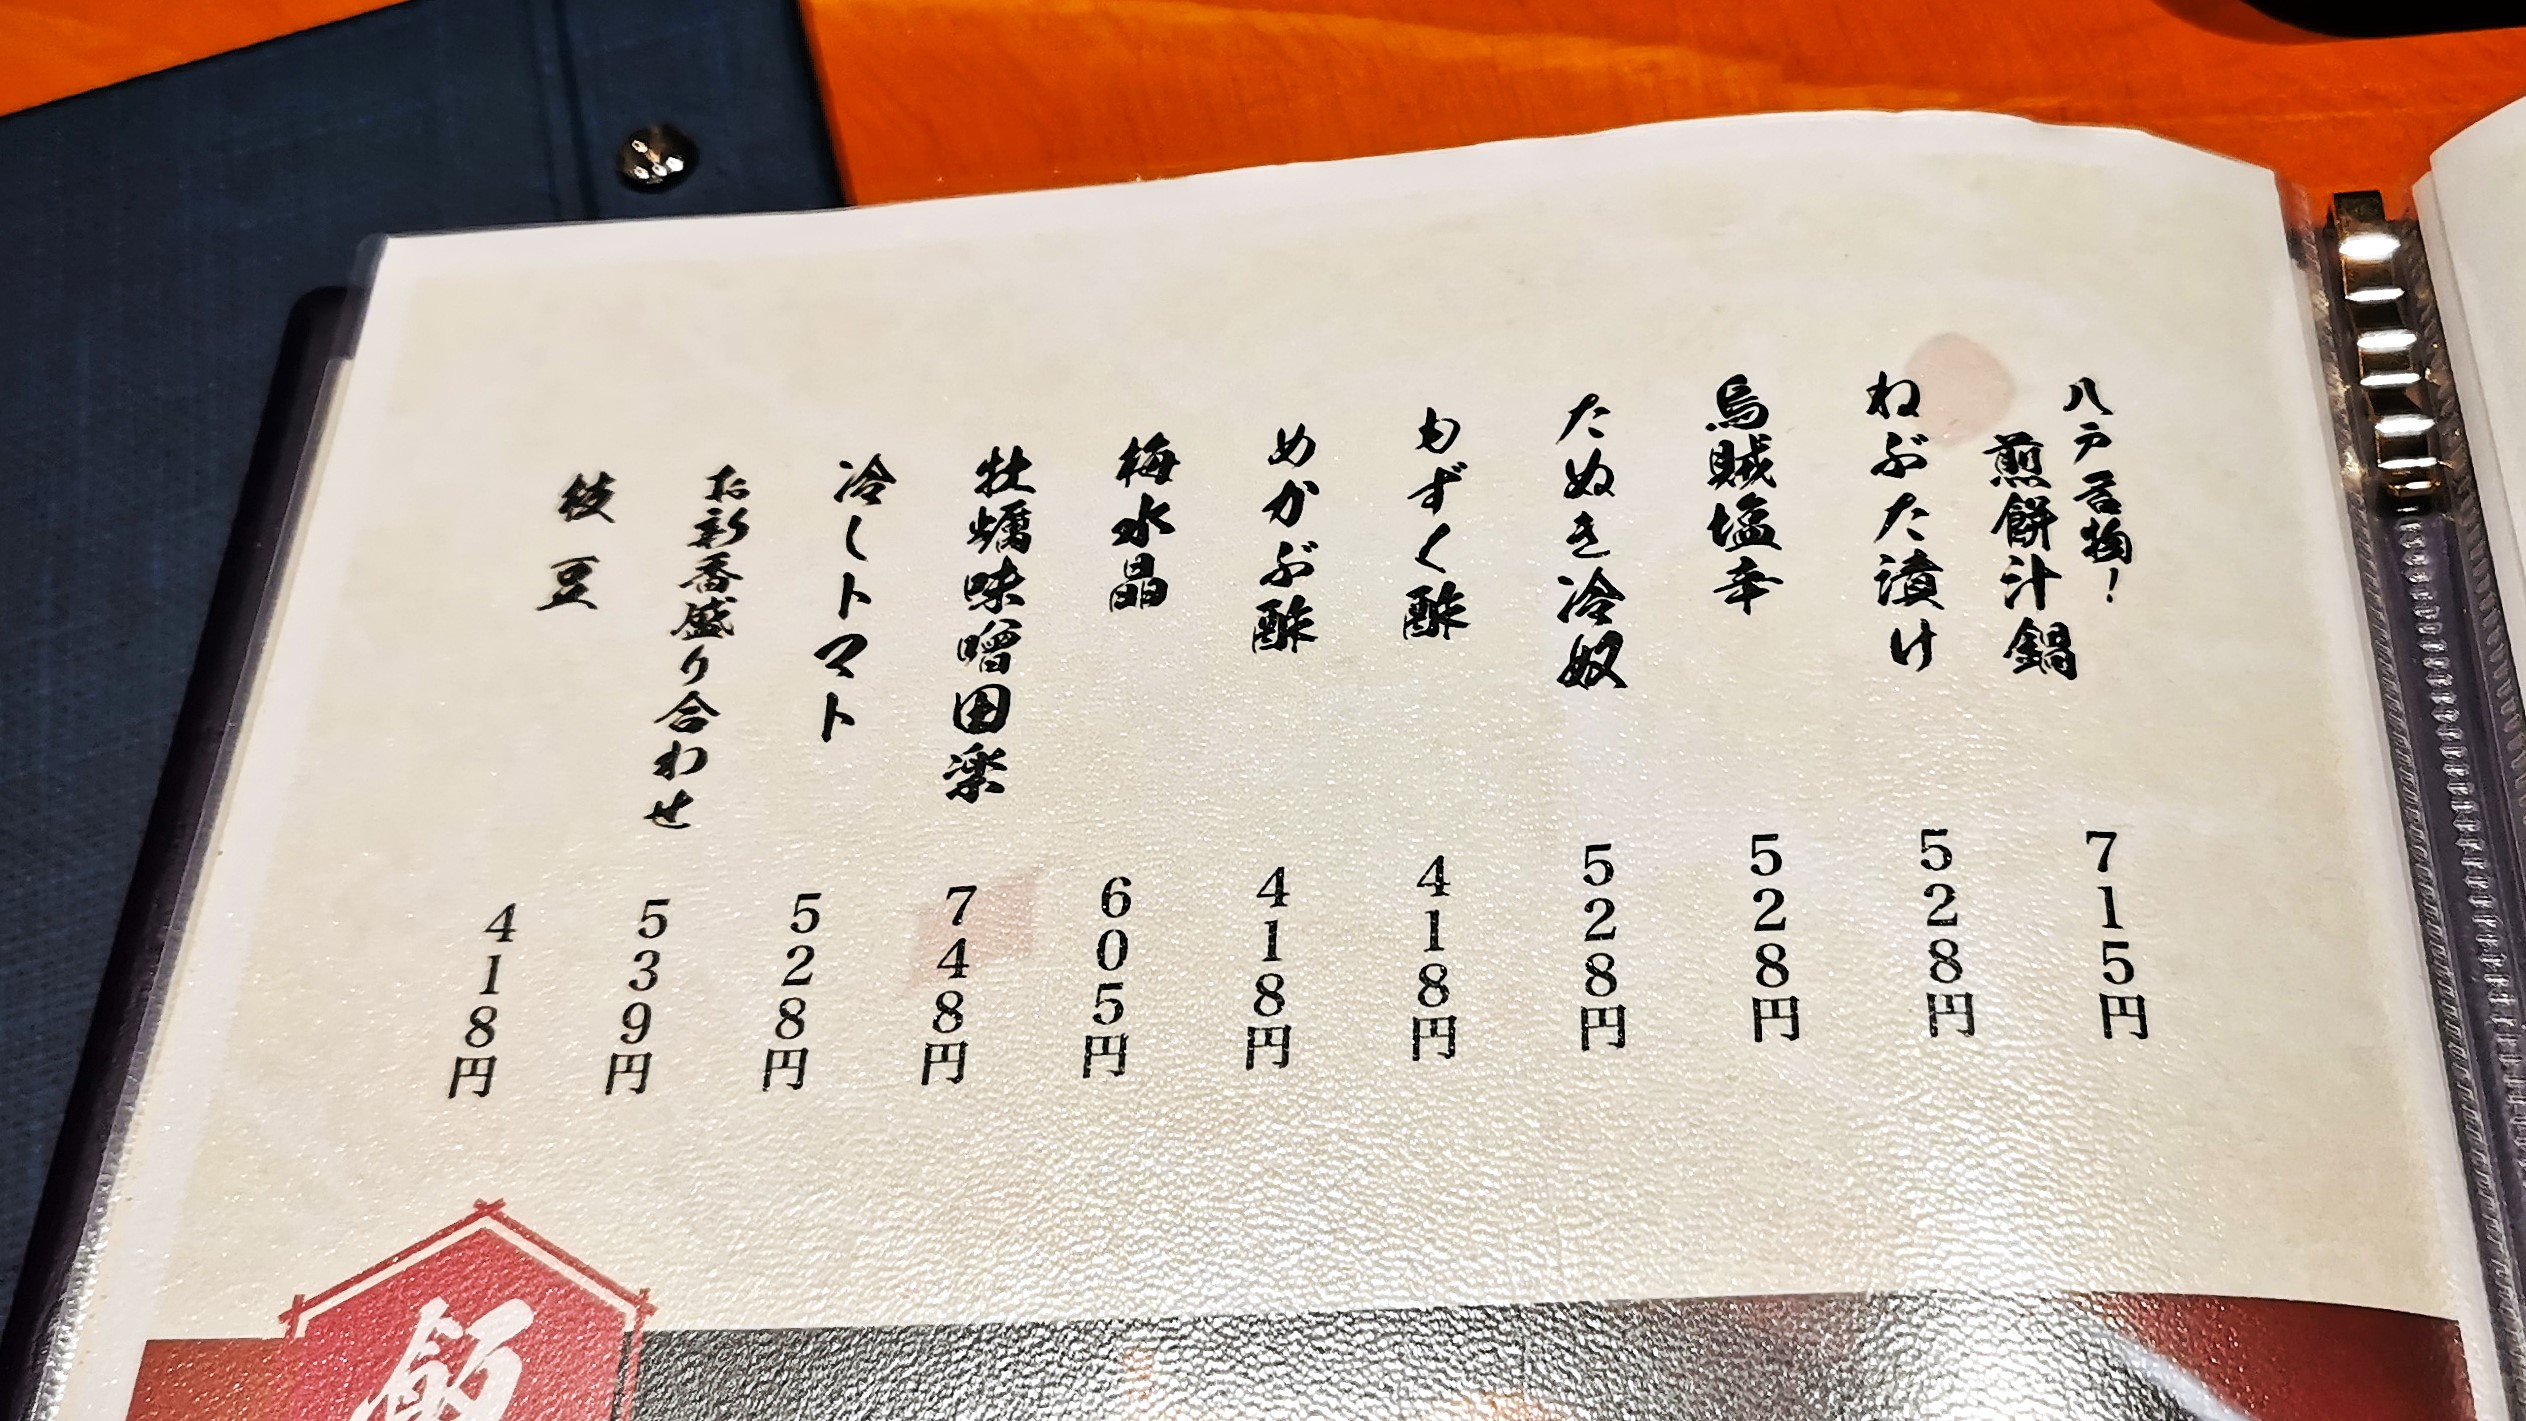 八戸名物！
煎餅汁鍋
715円
ねぶた漬け
528円
烏賊塩辛
528円
たぬき冷奴
528円
もずく酢
418円
めかぶ酢
418円
梅水晶
605円
牡蠣味噌田楽
748円
冷しトマト
528円
お新香盛り合わせ
539円
枝豆
418円
飯